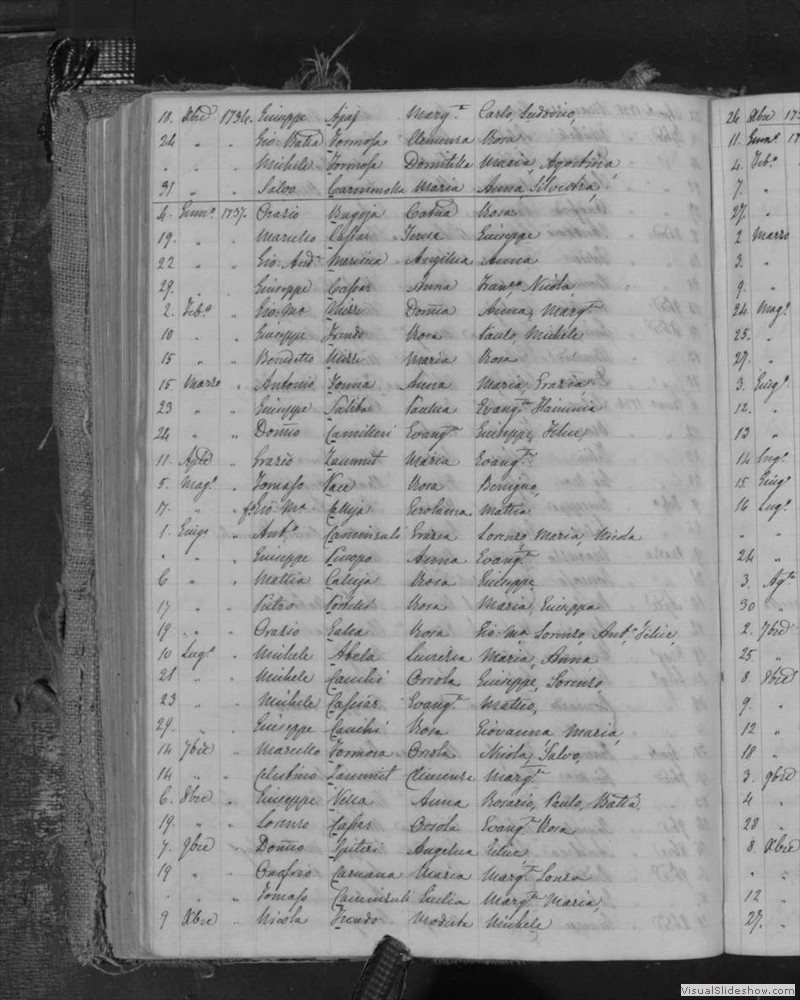 10. Xbre 1736. Giuseppe Ajaj Margta Carlo, Ludovico,
24 " " Gio: Batta Formosa Clemenza Rosa
" " " Michele Formosa Domitilla Maria, Agostina,
31 " " Salvo Maria Anna, Silvestra,
4. Genn.o 1737. Orazio Bugeja Catna Rosa
19. " " Marcello Cassar Teresa Giuseppe
22 " " Gio: And.a Angelica Anna
29. " " Giuseppe Cassar Anna Franc.o Nicola
2. Feb.o " Gio: Ma Mizzi Domca Anna, Margta
10 " " Giuseppe Rosa Paulo, Michele
15 " " Benedetto Mizzi Maria Rosa
15 Marzo " Antonio Tonna Anna Maria, Grazia,
23 " " Giuseppe Saliba Paulica Evangta Flaminia
24 " " Domco Camilleri Evangta Giuseppe, Felice,
11. Aple " Grazio Zammit Maria Evangta
5. Mag.o " Tomaso Rosa Benigno,
17. " " Gio: Ma Calleja Gerolama Mattia
1. Giug.o " Ant.o Caminsuli Grazia Lorenzo, Maria, Nicola
" " " Giuseppe Anna Evangta
6 " " Mattia Calleja Rosa Giuseppe,
17 " " Pietro Rosa Maria, Giuseppa
19 " " Orazio Galea Rosa Gio: Ma, Lorenzo, Ant.o, Felice,
10 Lug.o " Michele Abela Lucrezia Maria, Anna
21 " " Michele Orsola Giuseppe, Lorenzo,
23 " " Michele Cassar Evangta Matteo,
29. " " Giuseppe Rosa Giovanna, Maria,
14 7bre " Marcello Formosa Orsola Nicola, Salvo,
14 " " Zammit Clemenza Margta
6. 8bre " Giuseppe Vella Anna Rosario, Paulo, Batta
19. " " Lorenzo Cassar Orsola Evangta Rosa
7. 9bre " Domco Spiteri Angelica Felice
19 " " Onofrio Caruana Maria Margta
" " " Tomaso Caminsuli Giulia Margta Maria,
9 Xbre " Nicola Modesta Michele
26 Xbre 173
11. Genn.o 17
4. Feb.o "
7. "
27. "
2 Marzo
3. "
9. "
24 Mag.o
25. "
27. "
3. Giug.o
12. "
13 "
14 Lug.o
15 Giug.o
16 Lug.o
" "
24 "
3. Ag.to
30 "
2. 7bre
25 "
8. 8bre
9. "
12 "
18 "
3. 9bre
4 "
28 "
8 Xbre
" "
12 "
27. "
VisualSlideshow.com